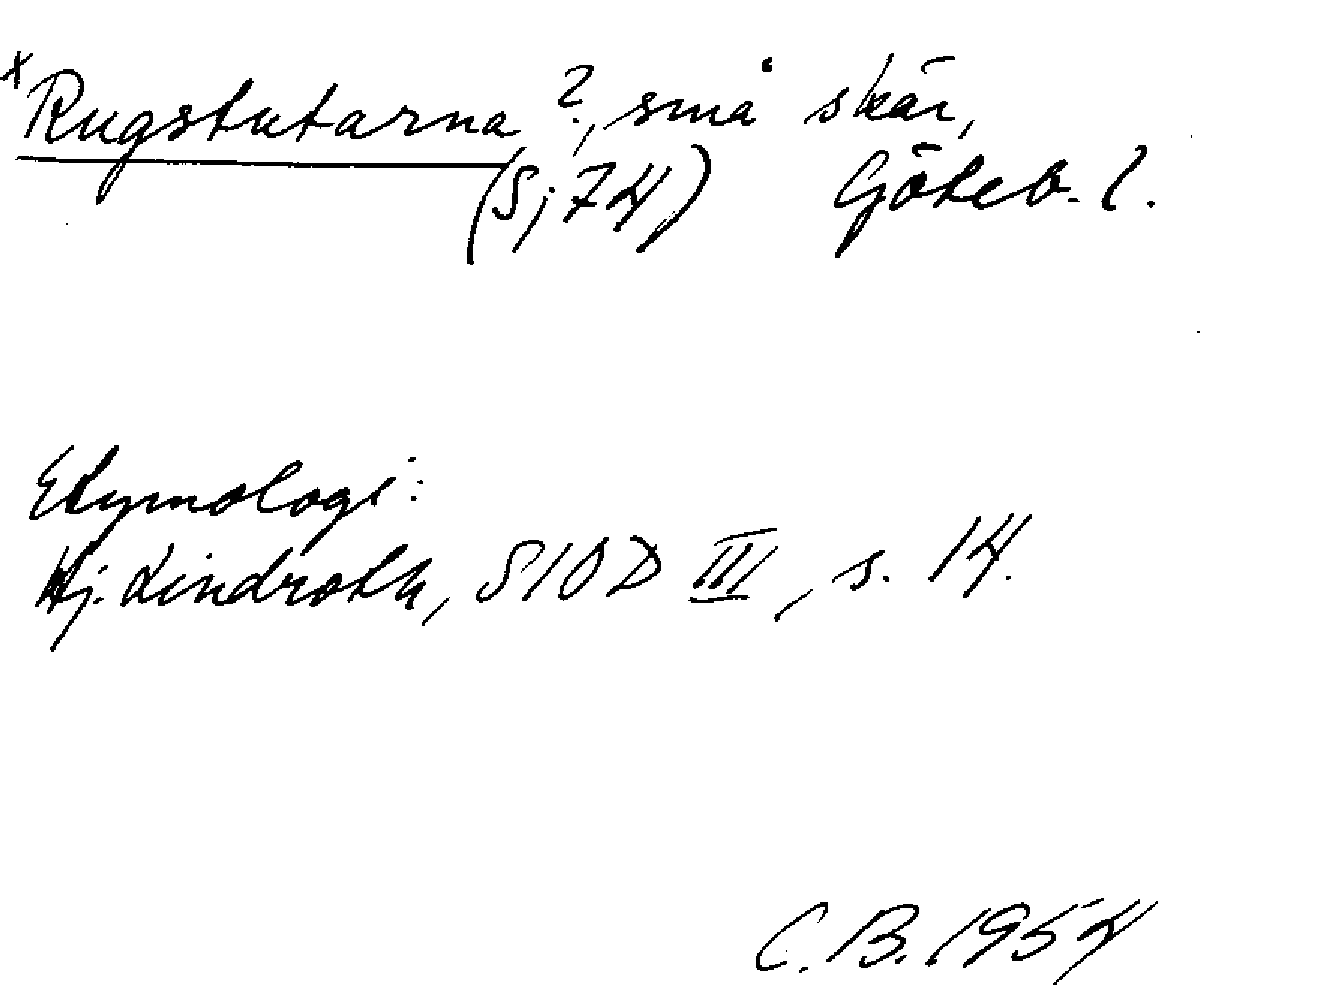 +Rugstutarna ?, små skär,
(Sj 74) Göteb. l.
Etymologi:
Hj. Lindroth, SIOD III, s. 14.
C. B. 1954